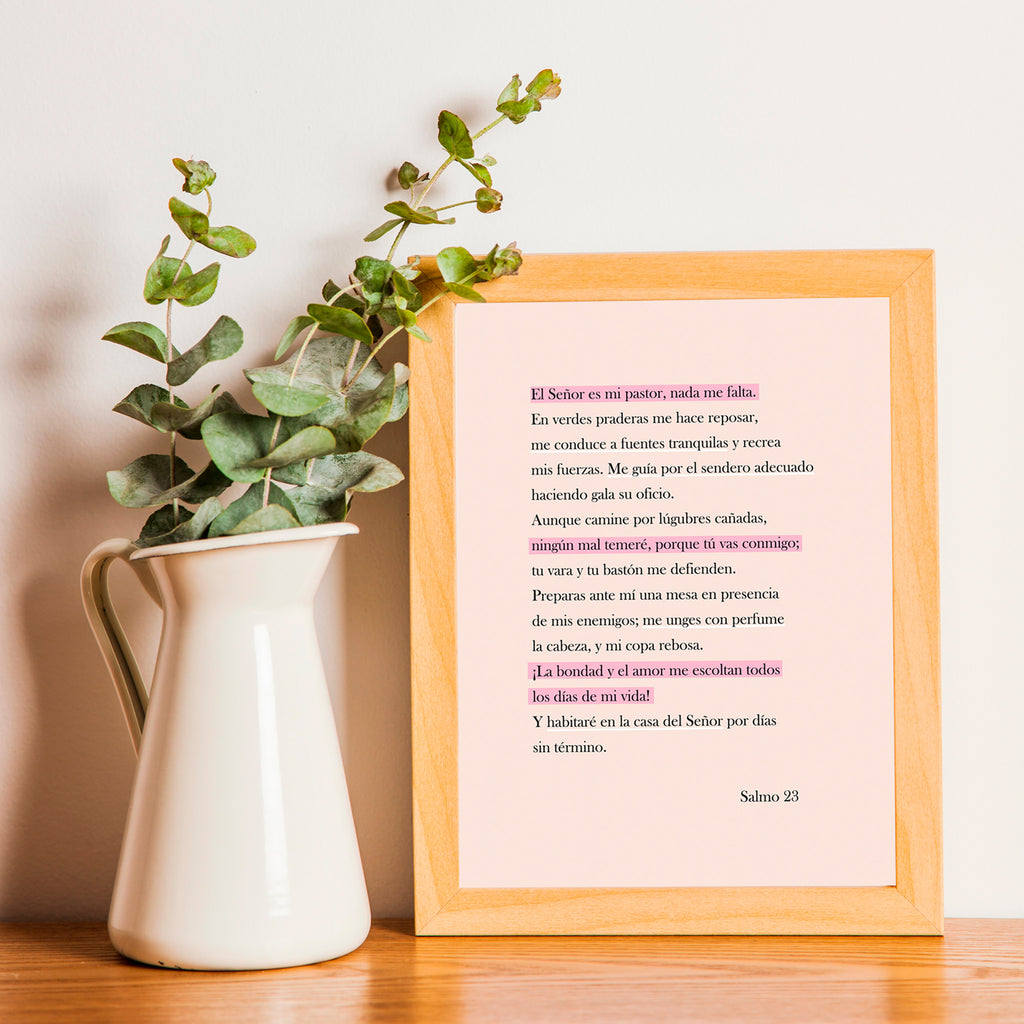 El Señor es mi pastor, nada me falta.
En verdes praderas me hace reposar,
me conduce a fuentes tranquilas y recrea
mis fuerzas. Me guía por el sendero adecuado
haciendo gala su oficio.
Aunque camine por lúgubres cañadas,
ningún mal temeré, porque tú vas conmigo;
tu vara y tu bastón me defienden.
Preparas ante mí una mesa en presencia
de mis enemigos; me unges con perfume
la cabeza, y mi copa rebosa.
¡La bondad y el amor me escoltan todos
los días de mi vida!
Y habitaré en la casa del Señor por días
sin término.
Salmo 23